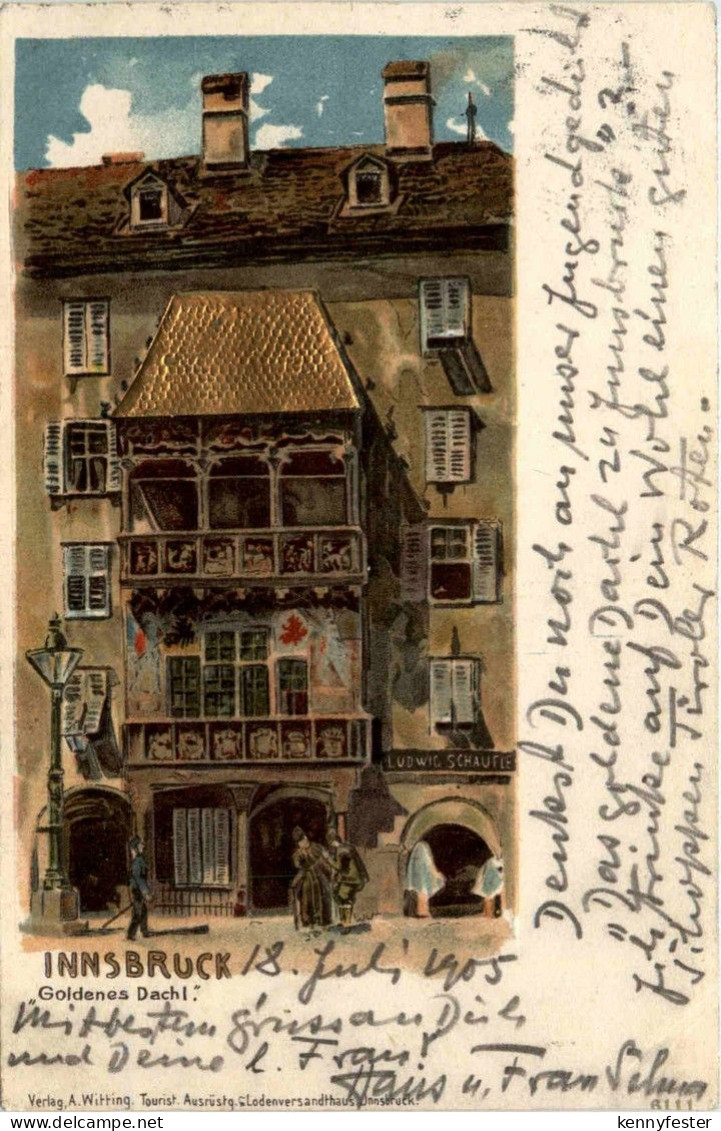 LUDWIG SCHAUFLE
INNSBRUCK 18. Juli 1905
„Goldenes Dachl.“
Mit bestem Gruss an Dich
und Deine l. Frau!
Hans u. Frau
Verlag, A. Witting. Tourist. Ausrüstg. & Lodenversandthaus, Innsbruck.
6111
Denkst Du noch an unser Jugendgedicht
"Das goldene Dachl zu Innsbruck"?
Ich trinke auf Dein Wohl einen guten
Schoppen Tiroler Roten.
kennyfester